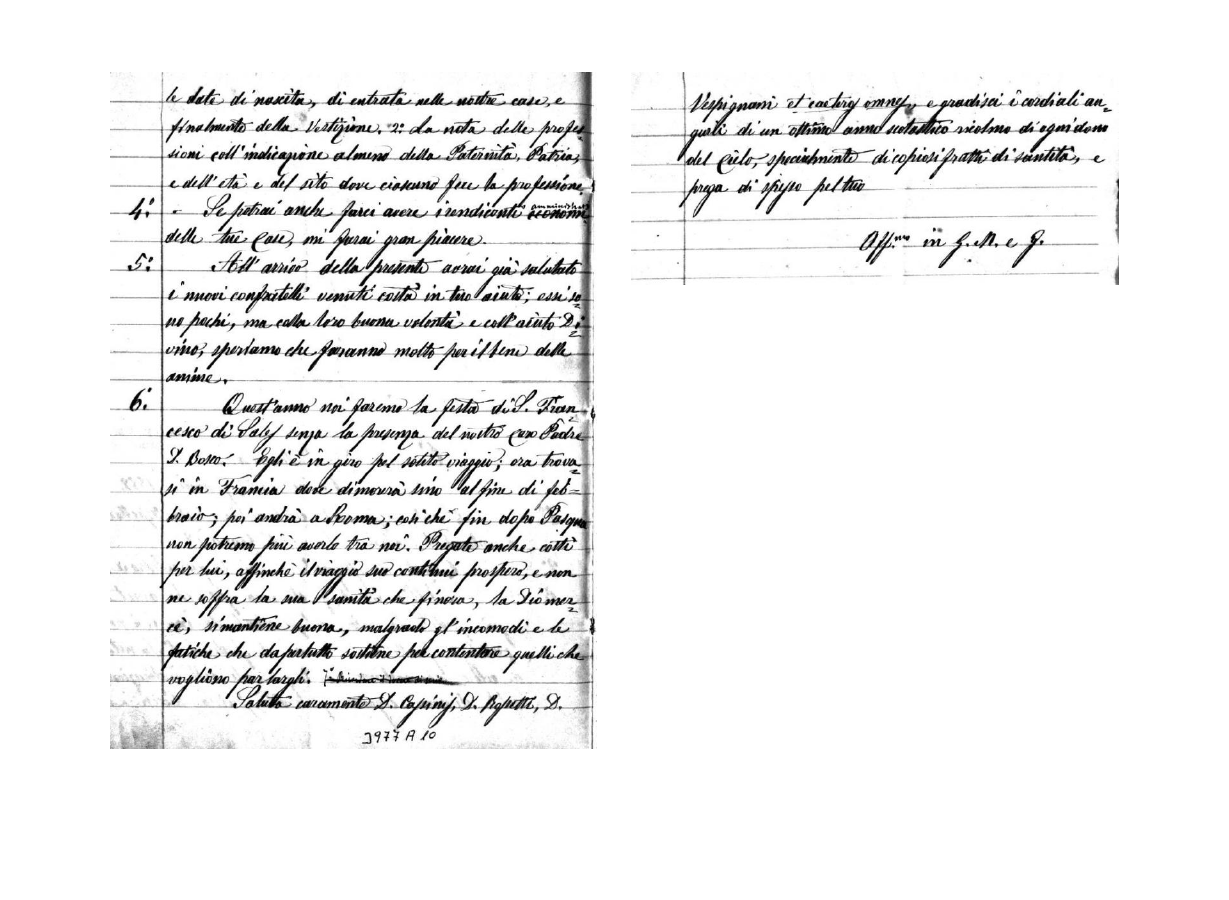 le date di nascita, di entrata nelle nostre case, e
finalmente della Vestizione. 2º La nota delle profes=
sioni coll'indicazione almeno della Paternità, Patria,
e dell'età e del sito dove ciascuno fece la professione.
4º - Se potrai anche farci avere i rendiconti amministrat
delle tue Case, mi farai gran piacere.
5º All'arrivo della presente avrai già salutato
i nuovi confratelli venuti costà in tuo aiuto; essi so=
no pochi, ma colla loro buona volontà e coll'aiuto Di=
vino, speriamo che faranno molto per il bene delle
anime.
6º Quest'anno noi faremo la festa di S. Fran=
cesco di Sales senza la presenza del nostro caro Padre
D. Bosco. Egli è in giro pel solito viaggio; ora trova=
si in Francia dove dimorerà sino al fine di feb=
braio; poi andrà a Roma; così chè fin dopo Pasqua
non potremo più averlo tra noi. Pregate anche costì
per lui, affinchè il viaggio suo continui prospero, e non
ne soffra la sua sanità che finora, la Dio mer=
cè, si mantiene buona, malgrado gl'incomodi e le
fatiche che dapertutto sostiene per contentare quelli che
vogliono parlargli.
Saluta caramente D. Costamagna, D.
J977 A 10
Vespignani et caeteros omnes, e gradisci i cordiali au=
guri di un ottimo anno scolastico ricolmo di ogni dono
del Cielo, specialmente di copiosi frutti di santità, e
prega di spesso pel tuo
Aff.mo in G. M. e G.